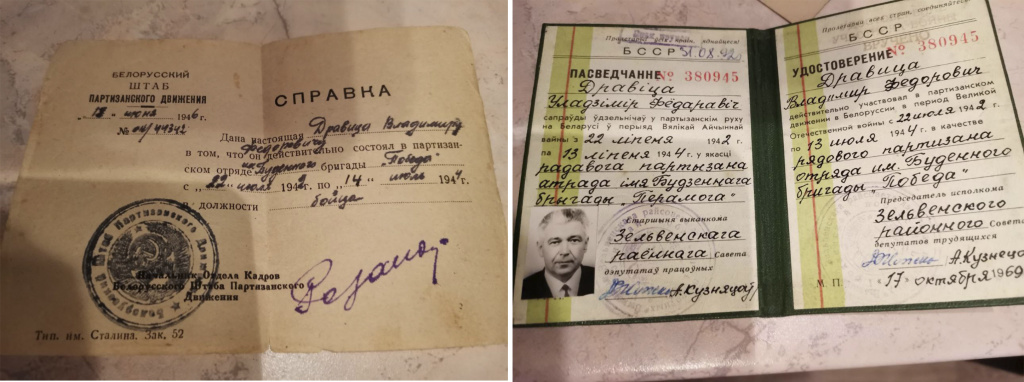 БЕЛОРУССКИЙ
ШТАБ
ПАРТИЗАНСКОГО ДВИЖЕНИЯ
"18" июня 1946 г.
СПРАВКА
Дана настоящая Дравица Владимиру
Федоровичу
в том, что он действительно состоял в партизан-
ском отряде им. Буденного бригады "Победа"
с "22" июля 1942 г. по "14" июль 1944 г.
в должности бойца
Начальник Отдела Кадров
Белорусского Штаба Партизанского
Движения
Тип. им. Сталина. Зак. 52
БССР
ПАСВЕДЧАННЕ № 380945
Дравица
Уладзімір Фёдаравіч
сапраўды ўдзельнічаў у партызанскім руху
на Беларусі ў перыяд Вялікай Айчыннай
вайны з 22 ліпеня 1942 г.
па 13 ліпеня 1944 г. у якасці
радавога партызана
атрада імя Будзённага
брыгады "Перамога"
Старшыня выканкома
Зельвенскага
раённага Совета
дэпутатаў працоўных
А.Кузняцоў
Пролетарии всех стран, соединяйтесь!
БССР
УДОСТОВЕРЕНИЕ № 380945
Дравица
Владимир Федорович
действительно участвовал в партизанском
движении в Белоруссии в период Великой
Отечественной войны с 22 июля 1942 г.
по 13 июля 1944 г. в качестве
рядового партизана
отряда им. Буденного
бригады "Победа"
Председатель исполкома
Зельвенского
районного Совета
депутатов трудящихся
А.Кузнецо
М. П. "17" октября 1969